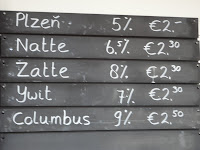 Plzeň 5% €2.-
Natte 6.5% €2.30
Zatte 8% €2.30
Ywit 7% €2.30
Columbus 9% €2.50